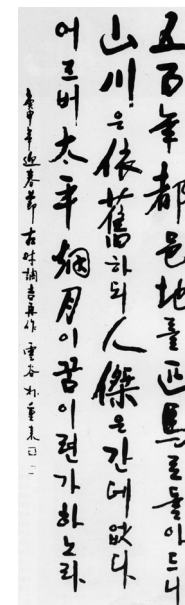 五百年都邑地를匹馬로돌아드니
山川은依舊하되人傑은간데없다.
어즈버太平烟月이꿈이련가하노라.
庚申年迎春節古时調吉再作 雲谷 朴